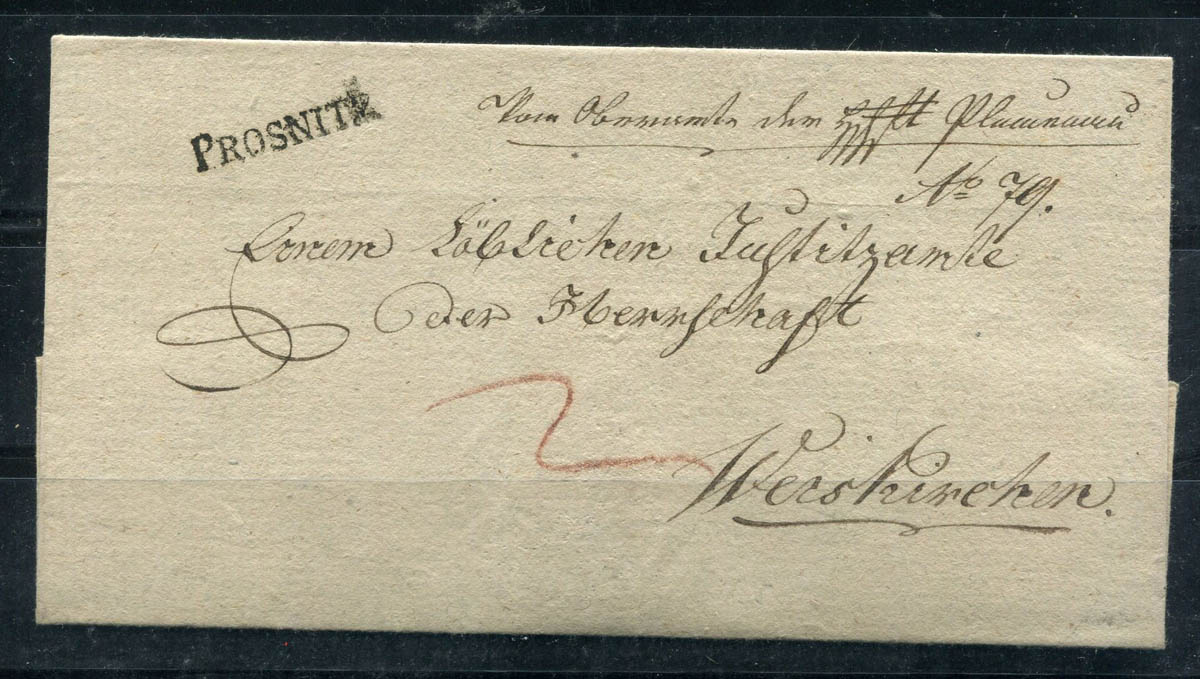 PROSNITZ
Vom Oberamte der Hftt Plumenau
No 79.
Einem Löblichen Justitzamte
der Herrschafft
2
Weiskirchen.